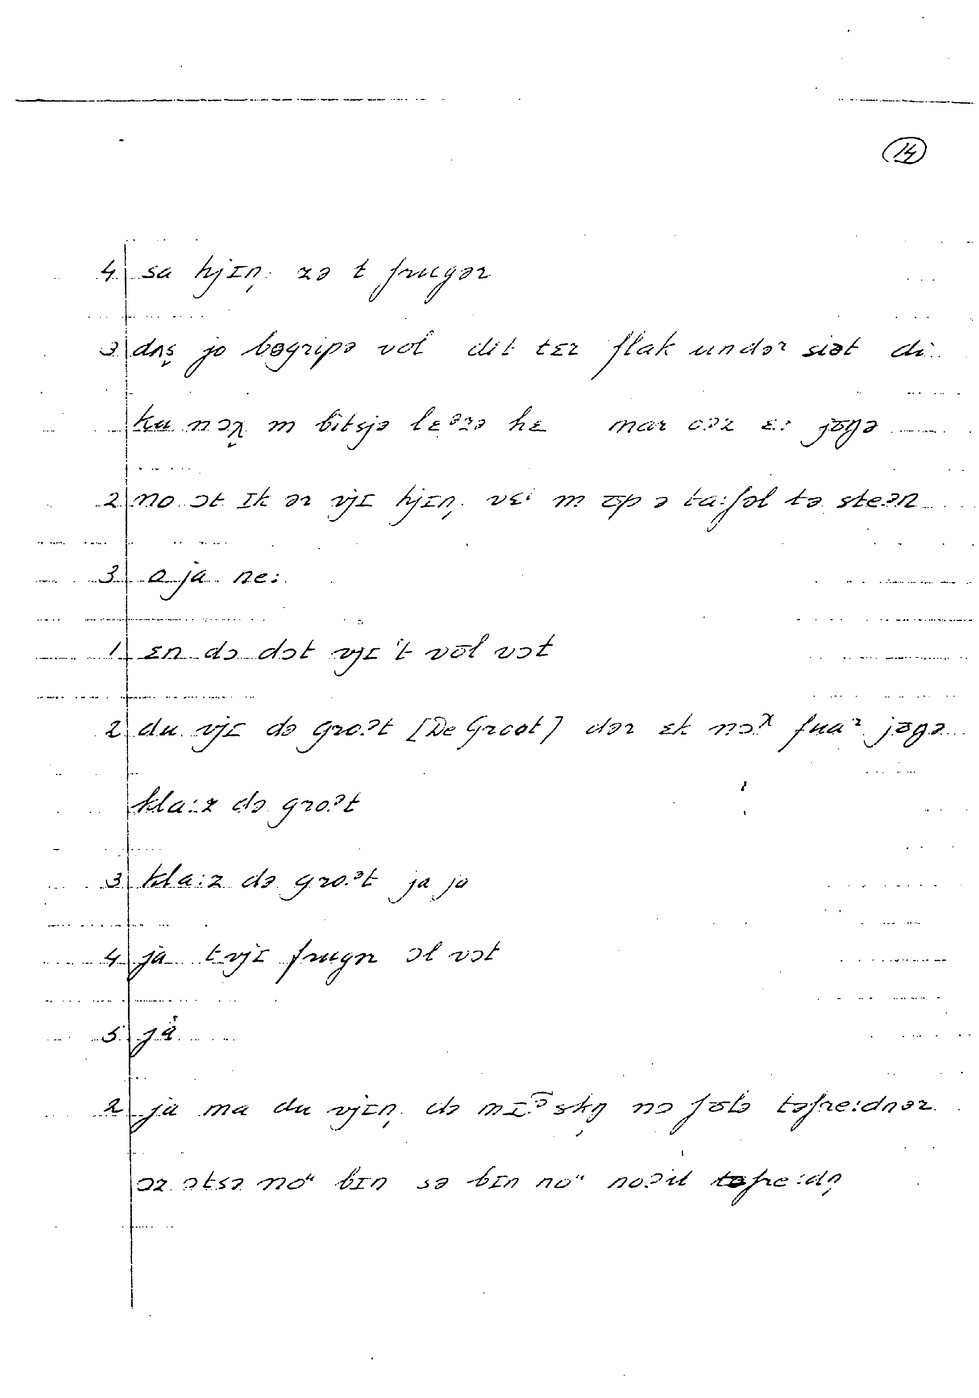 14
4 sa hjɪn̩ zə t fruɡər
3 dɑn̩s̬ jo bəɡripə vɔl dit tɛr flak undər siət di
ku nɔχ m bitsjə lɛᵊrə hɛ mar ɔəz ɛ: jōɡə
2 no ɔt ɪk ər vjɪ hjɪn̩ vɛi m ōp ə ta:fəl tə steən
3 o ja ne:
1 ɛn də dɔt vjɪ 't vōl vɔt
2 du vjɪ də ɡro.ᵊt [De Groot] dər ɛk nɔᵡ fuaʳ jōɡə
kla:z də ɡro.ᵊt
3 kla:z də ɡro.ᵊt ja ja
4 ja t vjɪ fruɡr ɔl vɔt
5 ja
2 ja ma du vjɪn̩ də mɪ̄ᵊskn̩ nɔ fōlə təfre:dnər
ɔz ɔtsə noᵘ bɪn sə bɪn noᵘ noəit təfre:dn̩